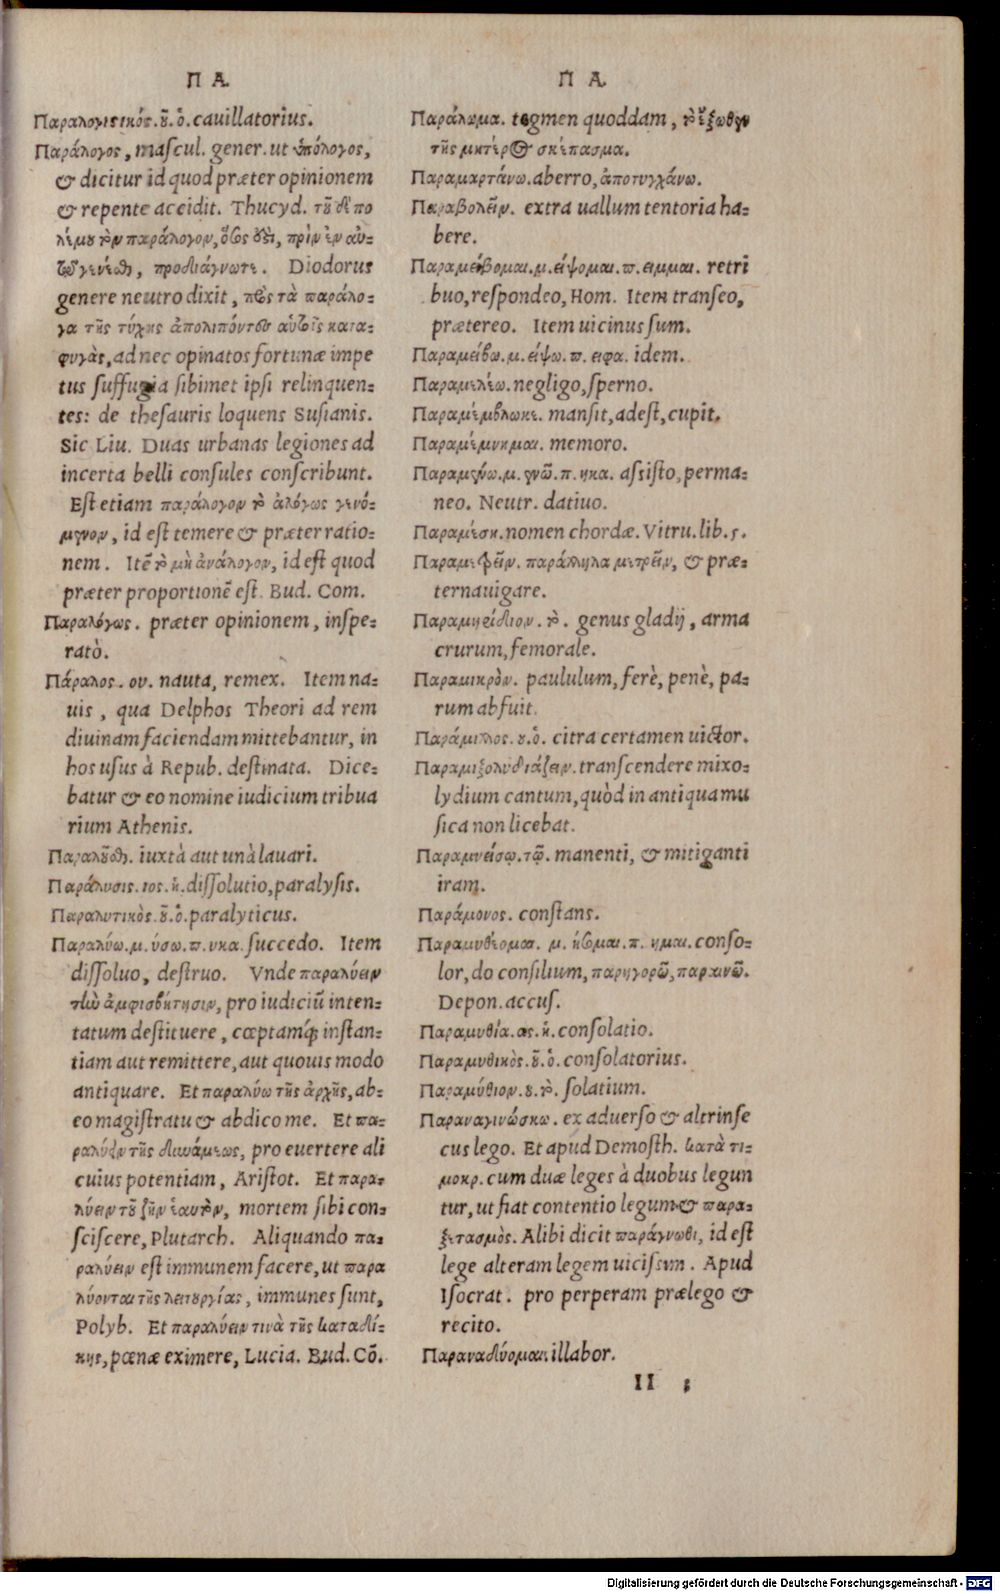 Π Α.
Παραλογιστικός. οῦ. ὁ. cauillatorius.
Παράλογος, mascul. gener. ut ἀπόλογος,
& dicitur id quod præter opinionem
& repente accidit. Thucyd. τοῦ δὲ πο
λέμου τὸν παράλογον, ὅσος ἐστὶ, πρὶν ἐν αὐ-
τῷ γενέσθαι, προδιάγνωτε. Diodorus
genere neutro dixit, πρὸς τὰ παράλο-
γα τῆς τύχης ἀπολιπόντας αὑτοῖς κατα-
φυγὰς, ad nec opinatos fortunæ impe
tus suffugia sibimet ipsi relinquen-
tes: de thesauris loquens Susianis.
Sic Liu. Duas urbanas legiones ad
incerta belli consules conscribunt.
Est etiam παράλογον τὸ ἀλόγως γενό-
μενον, id est temere & præter ratio-
nem. Itẽ τὸ μὴ ἀνάλογον, id est quod
præter proportionẽ est. Bud. Com.
Παραλόγως. præter opinionem, inspe-
ratò.
Πάραλος. ου. nauta, remex. Item na-
uis, qua Delphos Theori ad rem
diuinam faciendam mittebantur, in
hos usus à Repub. destinata. Dice-
batur & eo nomine iudicium tribua
rium Athenis.
Παραλοῦσθαι. iuxtà aut unà lauari.
Παράλυσις. ιος. ἡ. dissolutio, paralysis.
Παραλυτικὸς. οῦ. ὁ. paralyticus.
Παραλύω. μ. ύσω. π. υκα. succedo. Item
dissoluo, destruo. Vnde παραλύειν
τὴν ἀμφισβήτησιν, pro iudiciũ inten-
tatum destituere, cœptamq; instan-
tiam aut remittere, aut quouis modo
antiquare. Et παραλύω τῆς ἀρχῆς, ab-
eo magistratu & abdico me. Et πα-
ραλύειν τῆς δυνάμεως, pro euertere ali
cuius potentiam, Aristot. Et παρα-
λύειν τοῦ ζῆν ἑαυτὸν, mortem sibi con-
sciscere, Plutarch. Aliquando πα-
ραλύειν est immunem facere, ut παρα
λύονται τῆς λειτουργίας, immunes sunt,
Polyb. Et παραλύειν τινὰ τῆς καταδί-
κης, pœnæ eximere, Lucia. Bud. Cõ.
Π Α.
Παράλωμα. tegmen quoddam, τὸ ἔξωθεν
τῆς μητέρος σκέπασμα.
Παραμαρτάνω. aberro, ἀποτυγχάνω.
Παραβολεῖν. extra uallum tentoria ha-
bere.
Παραμείβομαι. μ. είψομαι. π. ειμμαι. retri
buo, respondeo, Hom. Item transeo,
prætereo. Item uicinus sum.
Παραμείβω. μ. είψω. π. ειφα. idem.
Παραμελέω. negligo, sperno.
Παραμέμβλωκε. mansit, adest, cupit.
Παραμέμνημαι. memoro.
Παραμένω. μ. ενῶ. π. ηκα. assisto, perma-
neo. Neutr. datiuo.
Παραμέση. nomen chordæ. Vitru. lib. 5.
Παραμετρεῖν. παράλληλα μετρεῖν, & præ-
ternauigare.
Παραμηρίδιον. τὸ. genus gladij, arma
crurum, femorale.
Παραμικρὸν. paululum, ferè, penè, pa-
rum abfuit.
Παράμιλλος. ου. ὁ. citra certamen uictor.
Παραμιξολυδιάζειν. transcendere mixo-
lydium cantum, quòd in antiqua mu
sica non licebat.
Παραμνείσῳ. τῷ. manenti, & mitiganti
iram.
Παράμονος. constans.
Παραμυθέομαι. μ. ήσομαι. π. ημαι. conso-
lor, do consilium, παρηγορῶ, παραινῶ.
Depon. accus.
Παραμυθία. ας. ἡ. consolatio.
Παραμυθικὸς. οῦ. ὁ. consolatorius.
Παραμύθιον. ου. τὸ. solatium.
Παραναγινώσκω. ex aduerso & altrinse
cus lego. Et apud Demosth. κατὰ τι-
μοκρ. cum duæ leges à duobus legun
tur, ut fiat contentio legum & παρα-
ξετασμὸς. Alibi dicit παράγνωθι, id est
lege alteram legem uicissim. Apud
Isocrat. pro perperam prælego &
recito.
Παραναδύομαι. illabor.
II 5
Digitalisierung gefördert durch die Deutsche Forschungsgemeinschaft - DFG